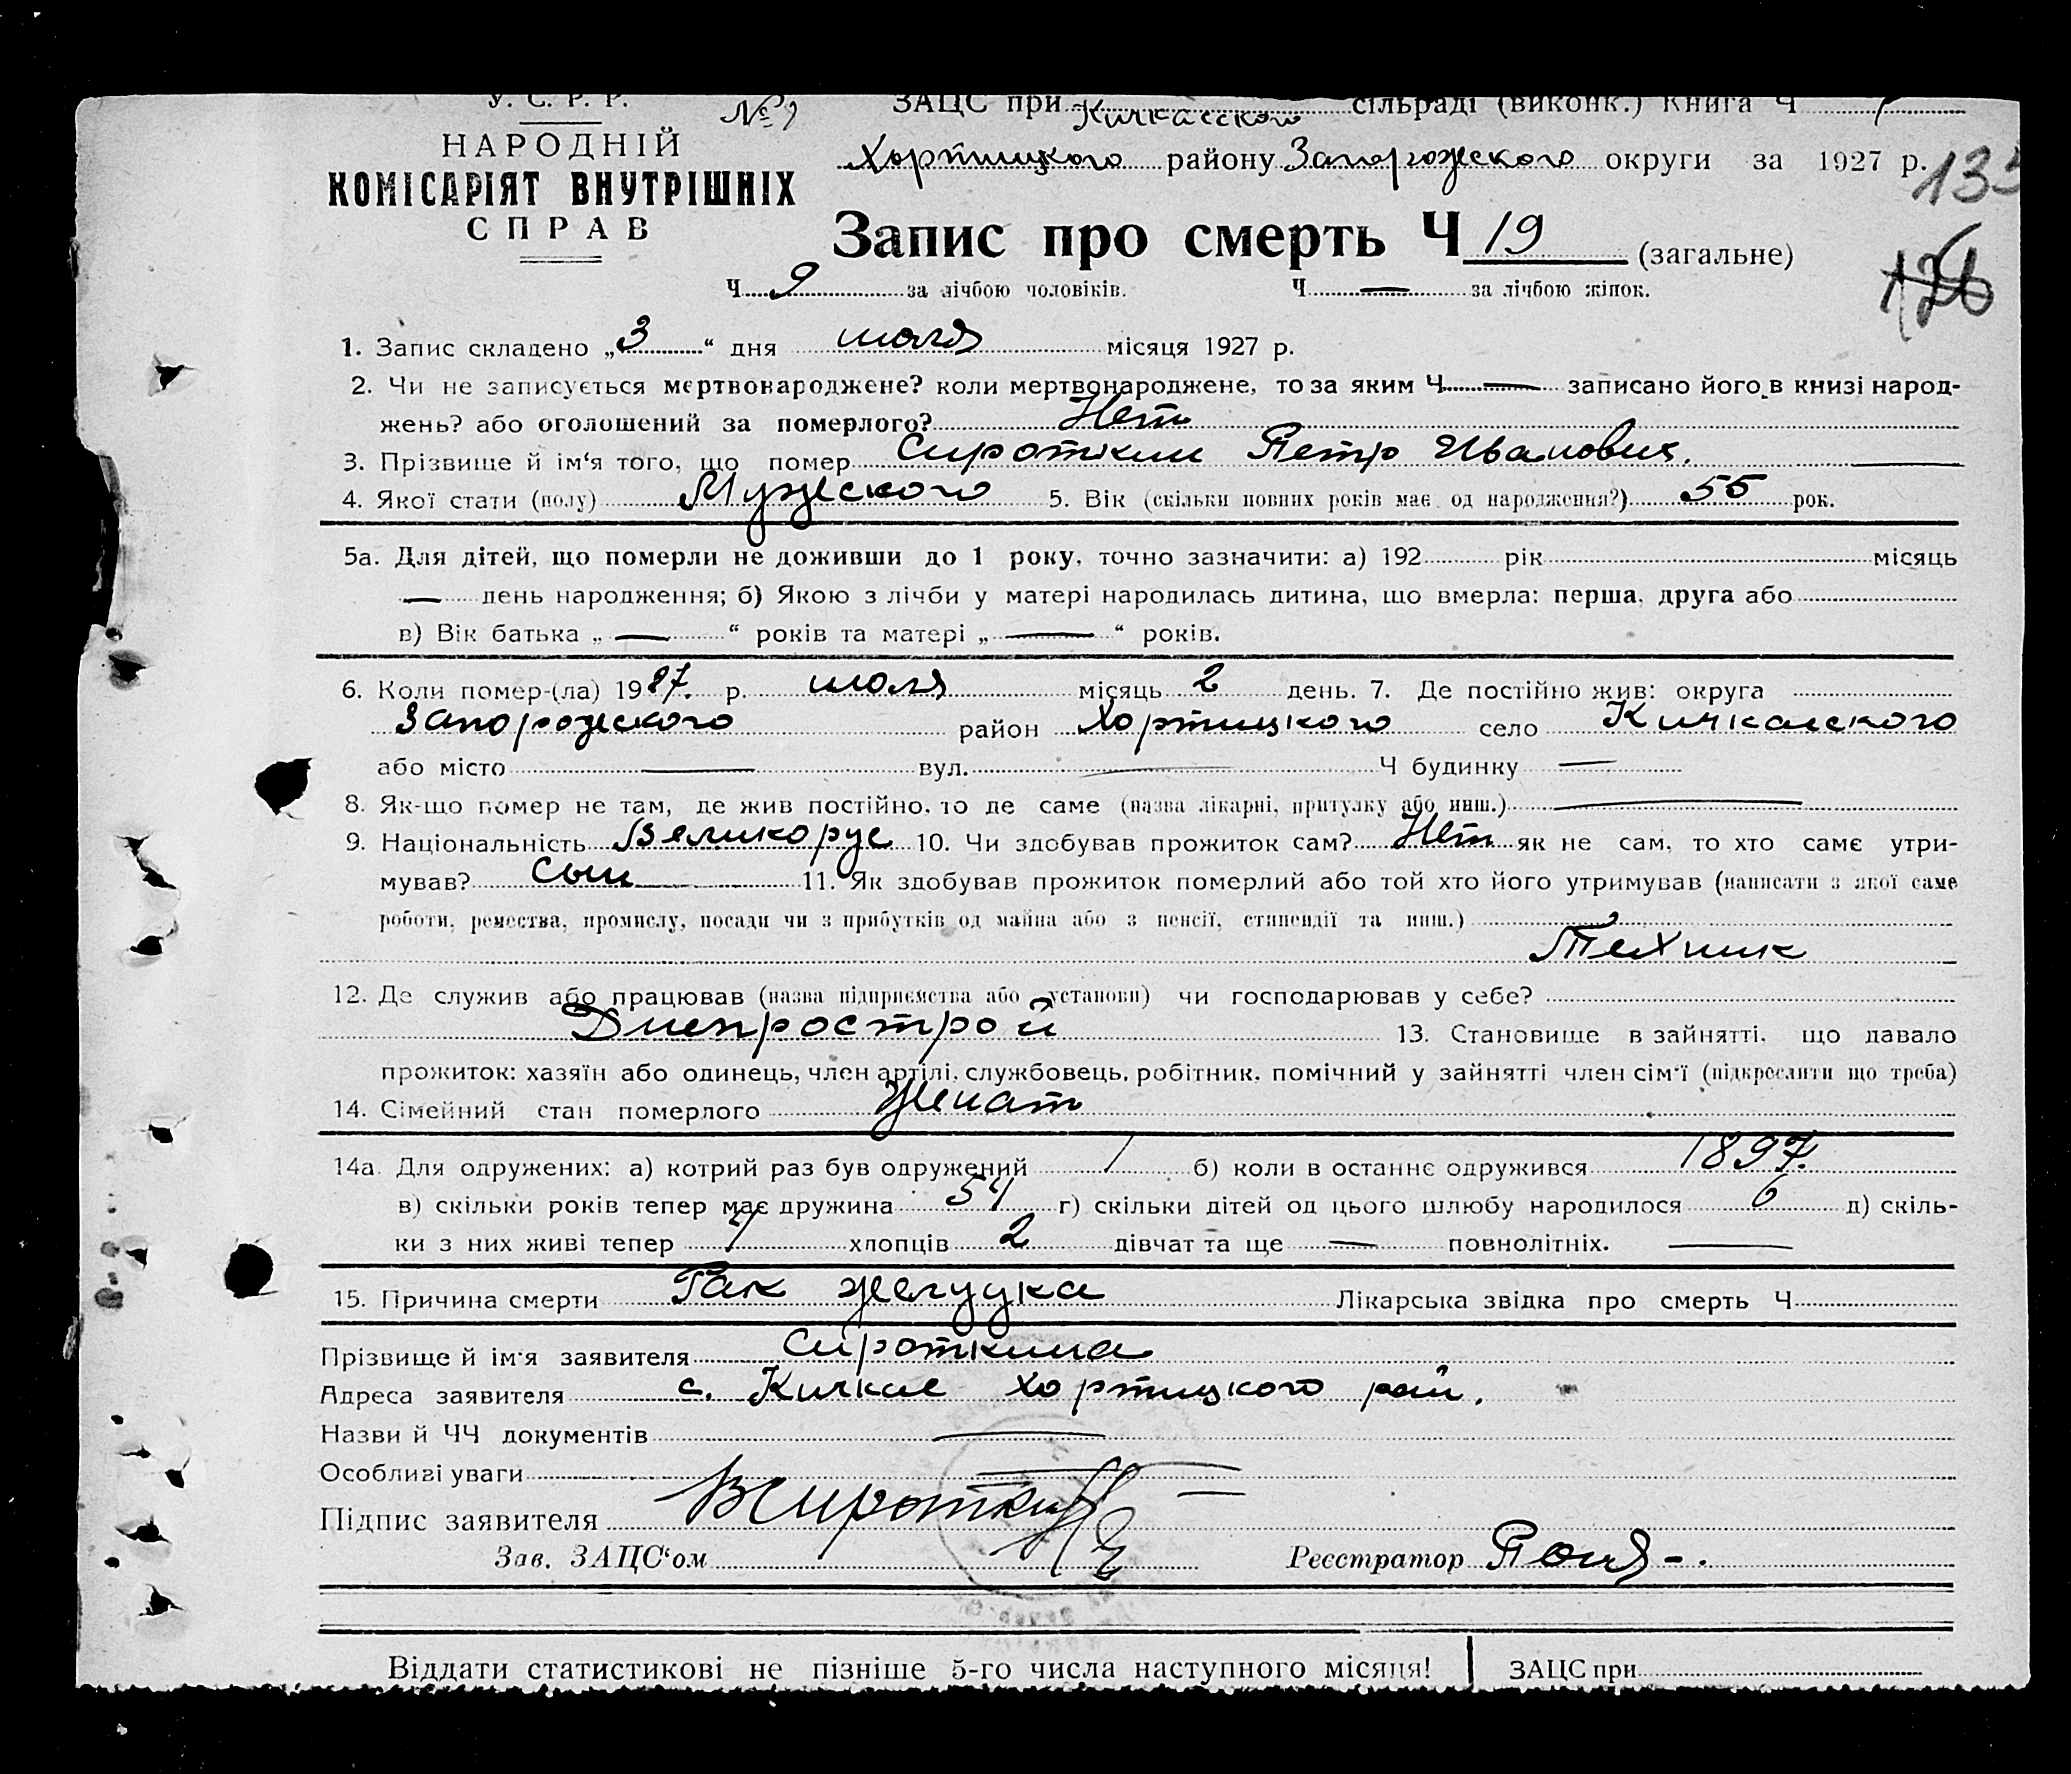 У. С. Р. Р. № 9 ЗАЦС при Кичкасском сільраді (виконк.) Книга Ч 1
НАРОДНІЙ
КОМІСАРІЯТ ВНУТРІШНІХ
СПРАВ
Хортицкого району Запорожского округи за 1927 р.
Запис про смерть Ч 19 (загальне)
126
Ч 9 за лічбою чоловіків. Ч — за лічбою жінок.
1. Запис складено „3“ дня июля місяця 1927 р.
2. Чи не записується мертвонароджене? коли мертвонароджене, то за яким Ч — записано його в книзі народ-
жень? або оголошений за померлого? Нет
3. Прізвище й ім‘я того, що помер Сироткин Петр Иванович.
4. Якої стати (полу) Мужеского 5. Вік (скільки повних років має од народження?) 55 рок.
5а. Для дітей, що померли не доживши до 1 року, точно зазначити: а) 192 рік місяць
— день народження; б) Якою з лічби у матері народилась дитина, що вмерла: перша, друга або
в) Вік батька „ — “ років та матері „ — “ років.
6. Коли помер-(ла) 1927. р. июля місяць 2 день. 7. Де постійно жив: округа
Запорожского район Хортицкого село Кичкасского
або місто — вул. — Ч будинку —
8. Як-що помер не там, де жив постійно, то де саме (назва лікарні, притулку або инш.) —
9. Національність Великорус 10. Чи здобував прожиток сам? Нет як не сам, то хто саме утри-
мував? Сын 11. Як здобував прожиток померлий або той хто його утримував (написати з якої саме
роботи, ремества, промислу, посади чи з прибутків од майна або з пенсії, стипендії та инш.)
Техник
12. Де служив або працював (назва підприємства або установи) чи господарював у себе?
Днепрострой 13. Становище в зайнятті, що давало
прожиток: хазяїн або одинець, член артілі, службовець, робітник, помічний у зайнятті член сім‘ї (підкреслити що треба)
14. Сімейний стан померлого Женат
14а. Для одружених: а) котрий раз був одружений 1 б) коли в останнє одружився 1897.
в) скільки років тепер має дружина 54 г) скільки дітей од цього шлюбу народилося 6 д) скіль-
ки з них живі тепер 4 хлопців 2 дівчат та ще — повнолітніх. —
15. Причина смерти Рак желудка Лікарська звідка про смерть Ч
Прізвище й ім‘я заявителя Сироткина
Адреса заявителя с. Кичкас Хортицкого рай.
Назви й ЧЧ документів —
Особливі уваги —
Підпис заявителя ВСироткин
Зав. ЗАЦС‘ом Реєстратор
Віддати статистикові не пізніше 5-го числа наступного місяця! ЗАЦС при